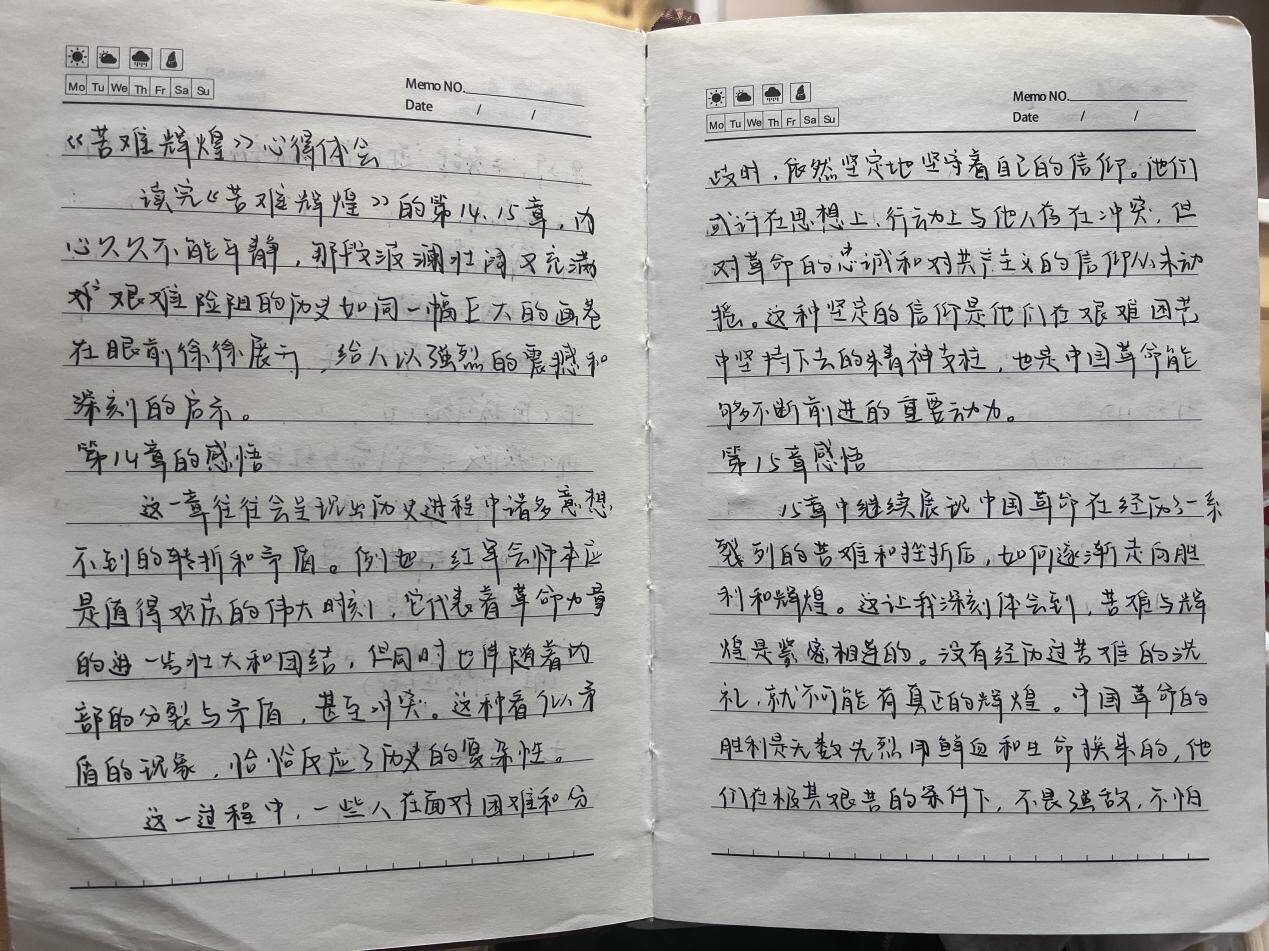 Mo Tu We Th Fr Sa Su
Memo NO.
Date / /
《苦难辉煌》心得体会
读完《苦难辉煌》的第14、15章，内
心久久不能平静，那段波澜壮阔又充满
艰难险阻的历史如同一幅巨大的画卷
在眼前徐徐展开，给人以强烈的震撼和
深刻的启示。
第14章的感悟
这一章往往会呈现出历史进程中诸多意想
不到的转折和矛盾。例如，红军会师本应
是值得欢庆的伟大时刻，它代表着革命力量
的进一步壮大和团结，但同时也伴随着内
部的分裂与矛盾，甚至冲突。这种看似矛
盾的现象，恰恰反应了历史的复杂性。
这一过程中，一些人在面对困难和分
Mo Tu We Th Fr Sa Su
Memo NO.
Date / /
歧时，依然坚定地坚守着自己的信仰。他们
或许在思想上、行动上与他人存在冲突，但
对革命的忠诚和对共产主义的信仰从未动
摇。这种坚定的信仰是他们在艰难困苦
中坚持下去的精神支柱，也是中国革命能
够不断前进的重要动力。
第15章感悟
15章中继续展现中国革命在经历了一系
列的苦难和挫折后，如何逐渐走向胜
利和辉煌。这让我深刻体会到，苦难与辉
煌是紧密相连的。没有经历过苦难的洗
礼，就不可能有真正的辉煌。中国革命的
胜利是无数先烈用鲜血和生命换来的，他
们在极其艰苦的条件下，不畏强敌，不怕